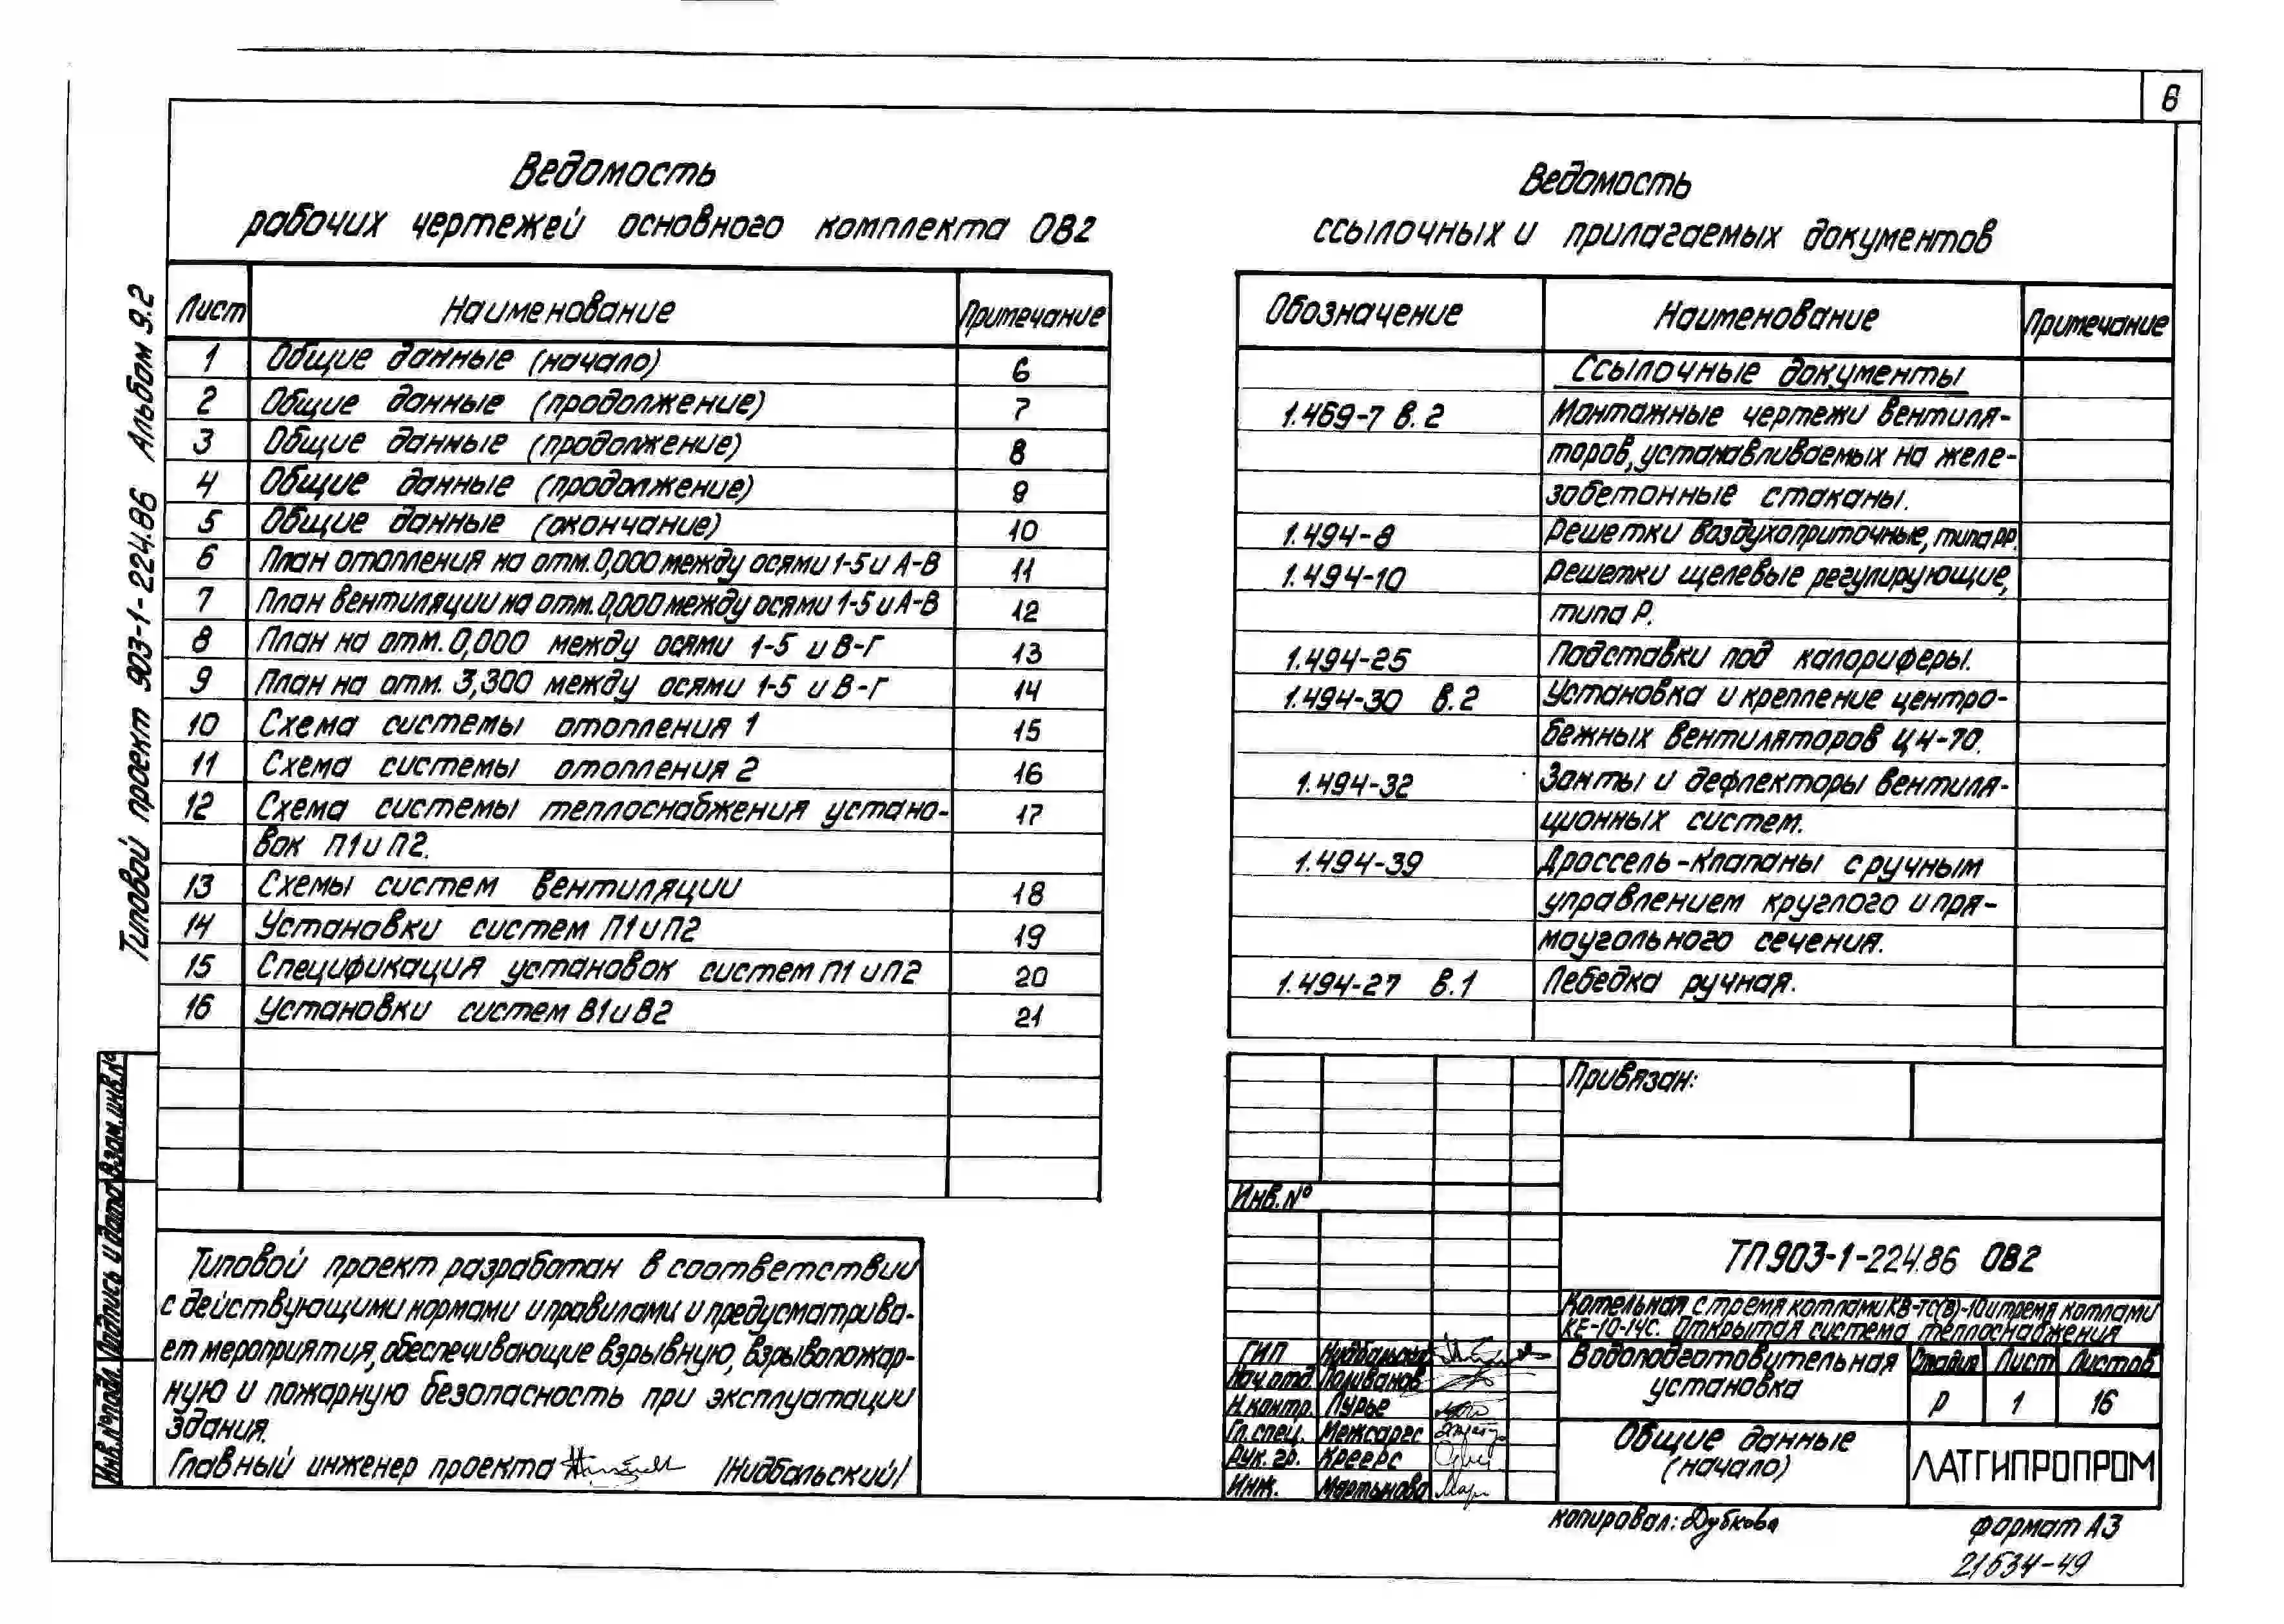 6
Типовой проект 903-1-224.86 Альбом 9.2
Ведомость
рабочих чертежей основного комплекта ОВ2
Лист Наименование Примечание
1 Общие данные (начало) 6
2 Общие данные (продолжение) 7
3 Общие данные (продолжение) 8
4 Общие данные (продолжение) 9
5 Общие данные (окончание) 10
6 План отопления на отм. 0,000 между осями 1-5 и А-В 11
7 План вентиляции на отм. 0,000 между осями 1-5 и А-В 12
8 План на отм. 0,000 между осями 1-5 и В-Г 13
9 План на отм. 3,300 между осями 1-5 и В-Г 14
10 Схема системы отопления 1 15
11 Схема системы отопления 2 16
12 Схема системы теплоснабжения устано- 17
вок П1 и П2.
13 Схемы систем вентиляции 18
14 Установки систем П1 и П2 19
15 Спецификация установок систем П1 и П2 20
16 Установки систем В1 и В2 21
Типовой проект разработан в соответствии
с действующими нормами и правилами и предусматрива-
ет мероприятия, обеспечивающие взрывную, взрывопожар-
ную и пожарную безопасность при эксплуатации
здания.
Главный инженер проекта /Нидбальский/
Ведомость
ссылочных и прилагаемых документов
Обозначение Наименование Примечание
Ссылочные документы
1.469-7 в.2 Монтажные чертежи вентиля-
торов, устанавливаемых на желе-
зобетонные стаканы.
1.494-8 Решетки воздухоприточные, типа РР.
1.494-10 Решетки щелевые регулирующие,
типа Р.
1.494-25 Подставки под калориферы.
1.494-30 в.2 Установка и крепление центро-
бежных вентиляторов Ц4-70.
1.494-32 Зонты и дефлекторы вентиля-
ционных систем.
1.494-39 Дроссель-клапаны с ручным
управлением круглого и пря-
моугольного сечения.
1.494-27 в.1 Лебедка ручная.
Привязан:
Инв. №
ТП 903-1-224.86 ОВ2
Котельная с тремя котлами КВ-ТС(В)-10 и тремя котлами
КЕ-10-14С. Открытая система теплоснабжения
ГИП Нидбальский
Нач.отд. Поливанов
Н.контр. Лурье
Гл.спец. Межсаргс
Рук.гр. Креерс
Инж. Мартынова
Водоподготовительная
установка
Стадия Лист Листов
Р 1 16
Общие данные
(начало)
ЛАТГИПРОПРОМ
Инв.№ подл. Подпись и дата Взам.инв.№
копировал: Дубкова
формат А3
21634-49